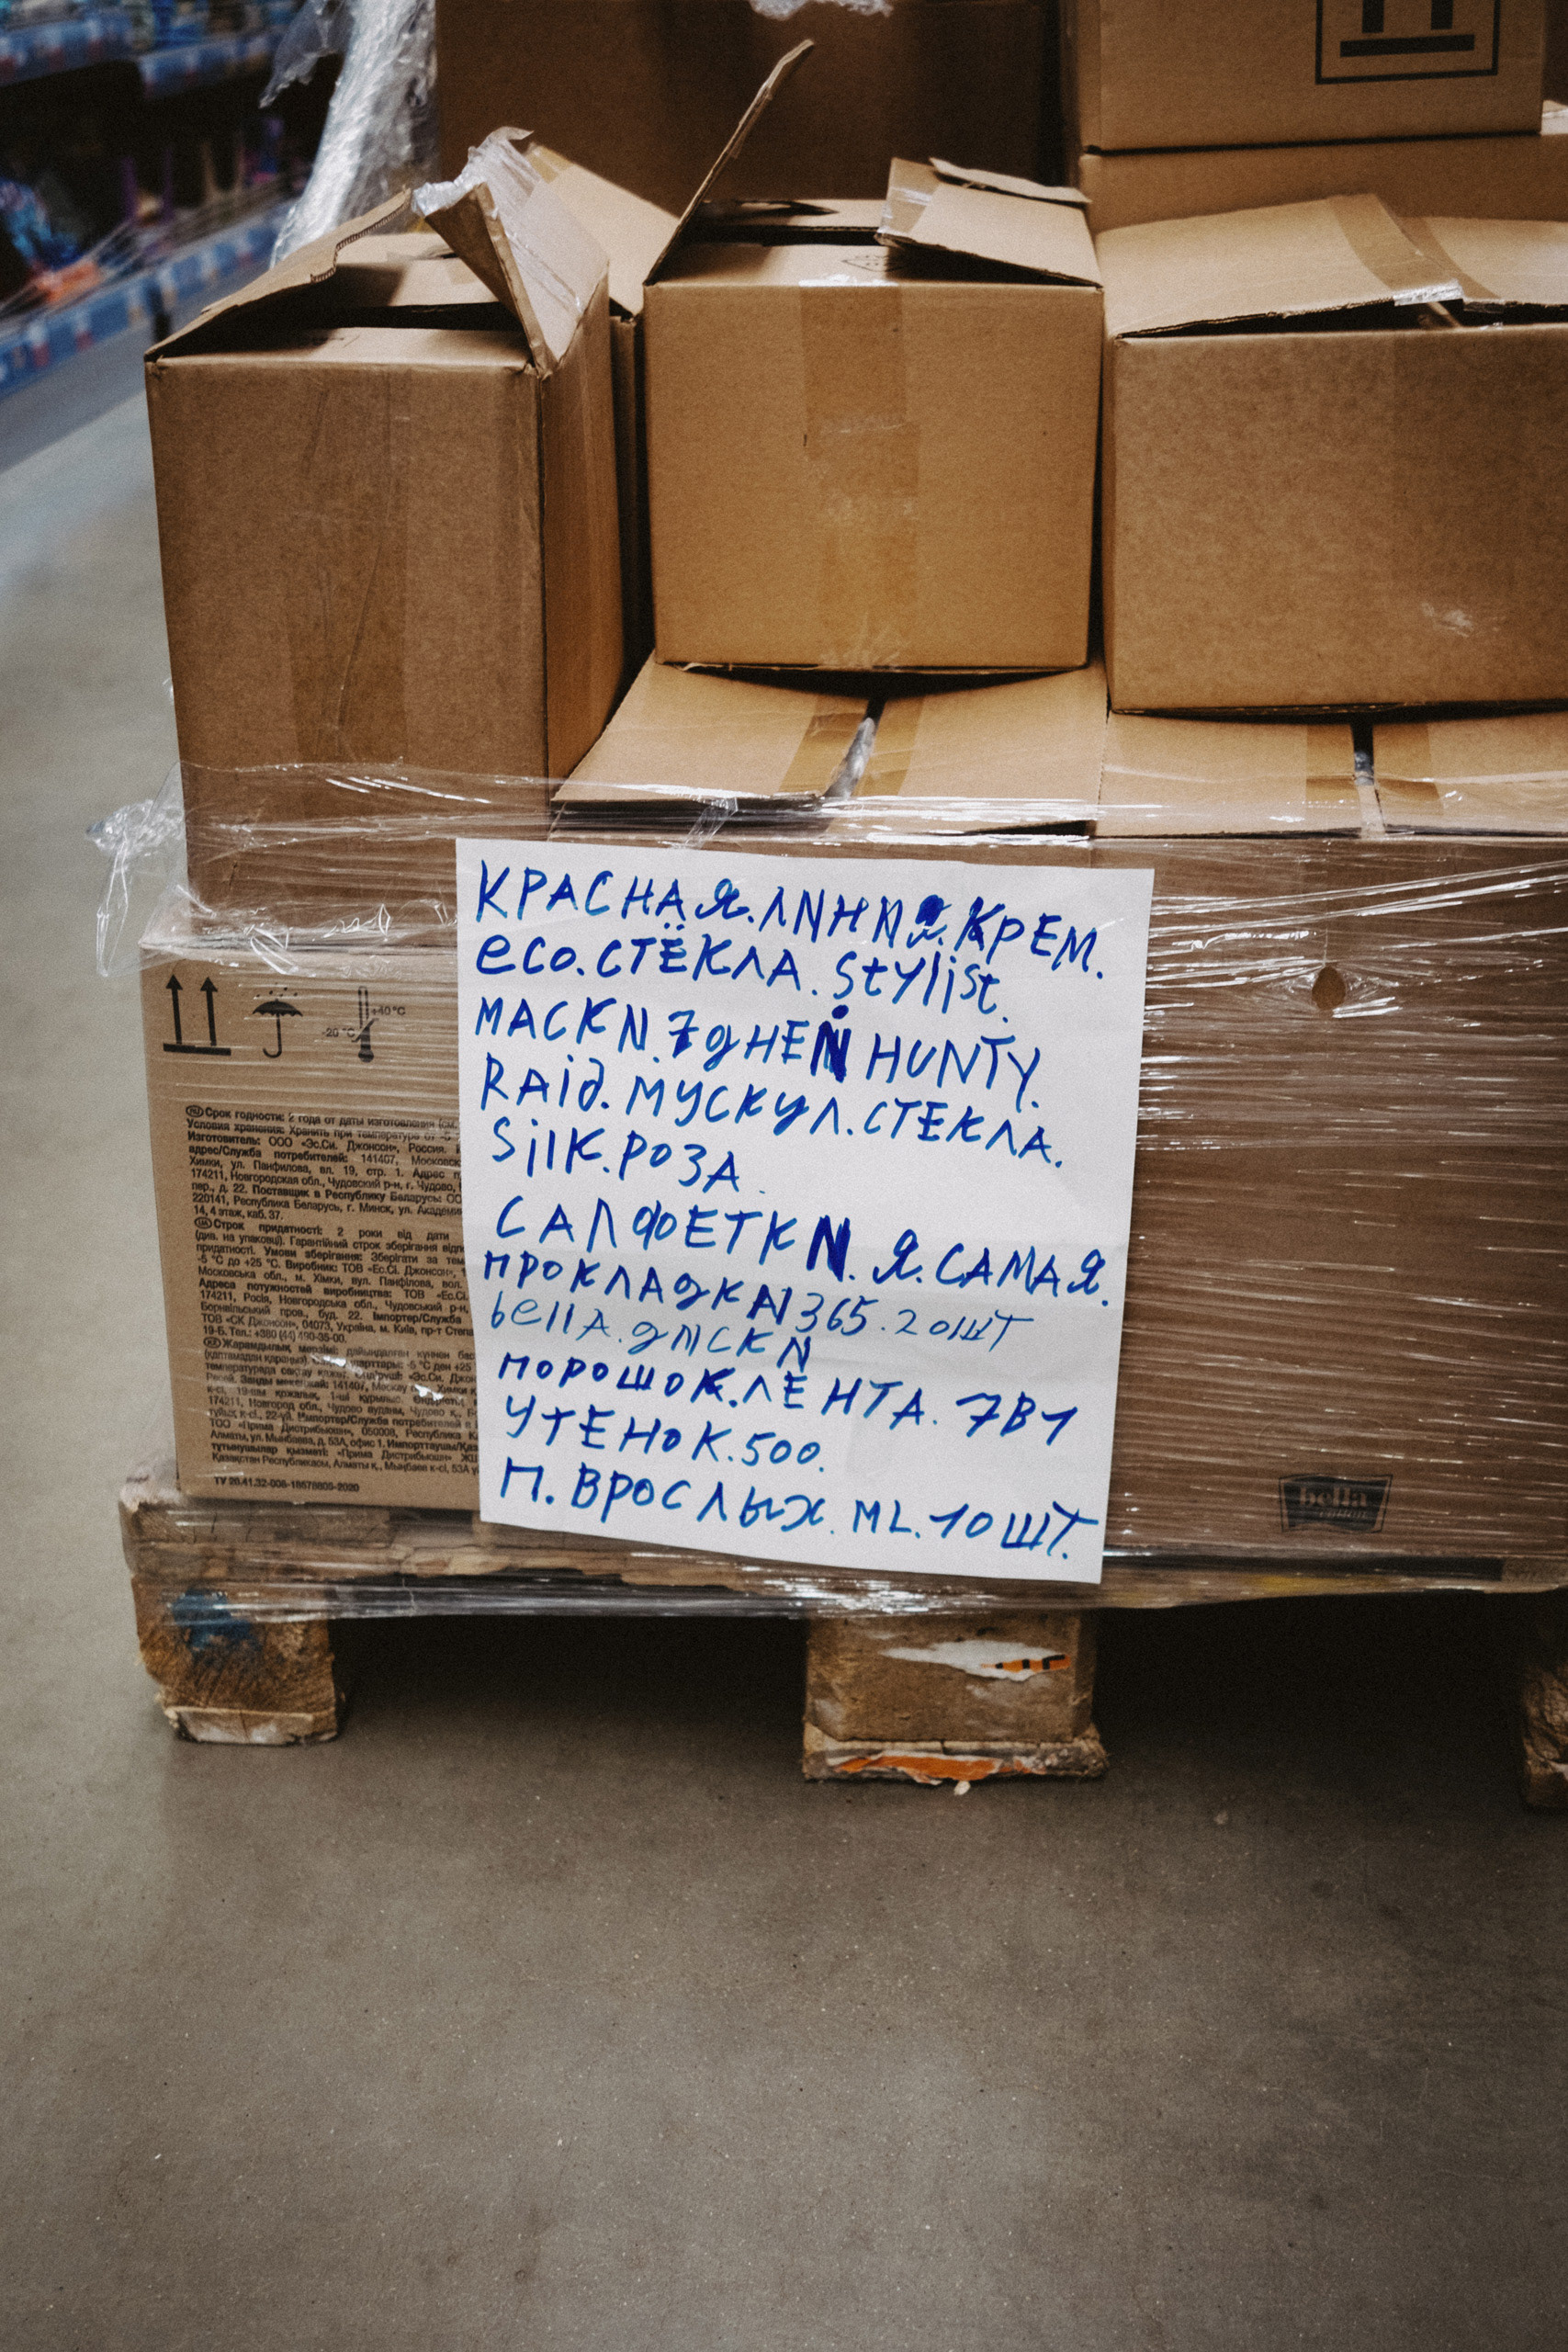 КРАСНАЯ.ЛИНИЯ.КРЕМ.
eco.СТЁКЛА.Stylist.
МАСКИ.7 ДНЕЙ HUNTY.
RAid.МУСКУЛ.СТЕКЛА.
Silk.РОЗА.
САЛФЕТКИ.Я.САМАЯ.
ПРОКЛАДКИ 365.20ШТ
bellА.ДИСКИ
ПОРОШОК.ЛЕНТА.7В1
УТЕНОК.500.
П.ВРОСЛЫХ.ML.10ШТ.
+40°C
-20°C
RU Срок годности: 2 года от даты изготовления (см.
Условия хранения: Хранить при температуре от -5
Изготовитель: ООО «Эс.Си. Джонсон», Россия.
адрес/Служба потребителей: 141407, Московск
Химки, ул. Панфилова, вл. 19, стр. 1. Адрес п
174211, Новгородская обл., Чудовский р-н, г. Чудово,
пер., д. 22. Поставщик в Республику Беларусь: ОО
220141, Республика Беларусь, г. Минск, ул. Академи
14, 4 этаж, каб. 37.
UA Строк придатності: 2 роки від дати
(див. на упаковці). Гарантійний строк зберігання відп
придатності. Умови зберігання: Зберігати за тем
-5 °C до +25 °C. Виробник: ТОВ «Ес.Сі. Джонсон»,
Московська обл., м. Хімки, вул. Панфілова, вол.
Адреса потужностей виробництва: ТОВ «Ес.Сі.
174211, Росія, Новгородська обл., Чудовський р-н,
пров., буд. 22. Імпортер/Служба
ТОВ «СК Джонсон», 04073, Україна, м. Київ, пр-т Степа
19-Б. Тел.: +380 (44) 490-35-00.
KZ Жарамдылық мерзімі: дайындалған күннен бас
шарттары: -5 °C ден +25
ТОО «Прима Дистрибьюшн», 050008, Республика К
Алматы, ул. Мынбаева, д. 53А, офис 1. Импорттаушы/Қаз
тұтынушылар қызметі: «Прима Дистрибьюшн» ЖШ
Қазақстан Республикасы, Алматы қ., Мыңбаев к-сі, 53А
ТУ 20.41.32-006-18678609-2020
bella